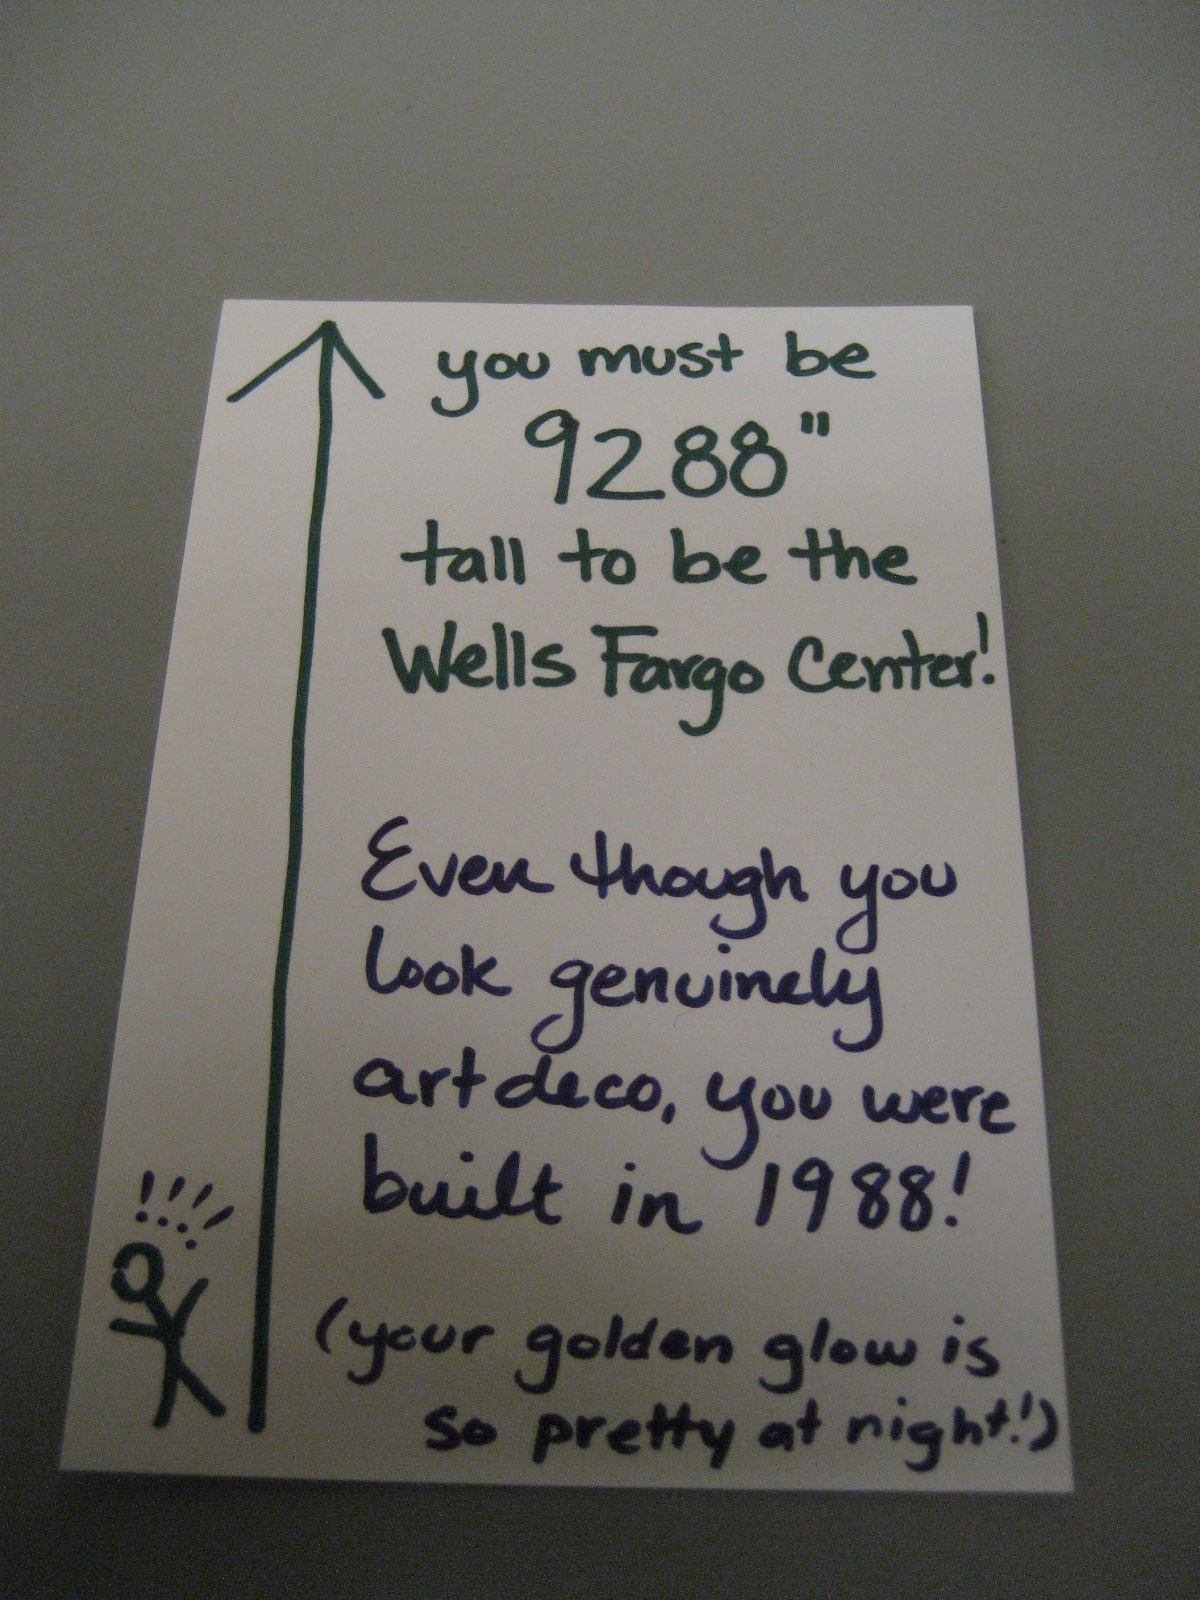 you must be
9288"
tall to be the
Wells Fargo Center!
Even though you
look genuinely
art deco, you were
built in 1988!
(your golden glow is
so pretty at night!)
!!!!